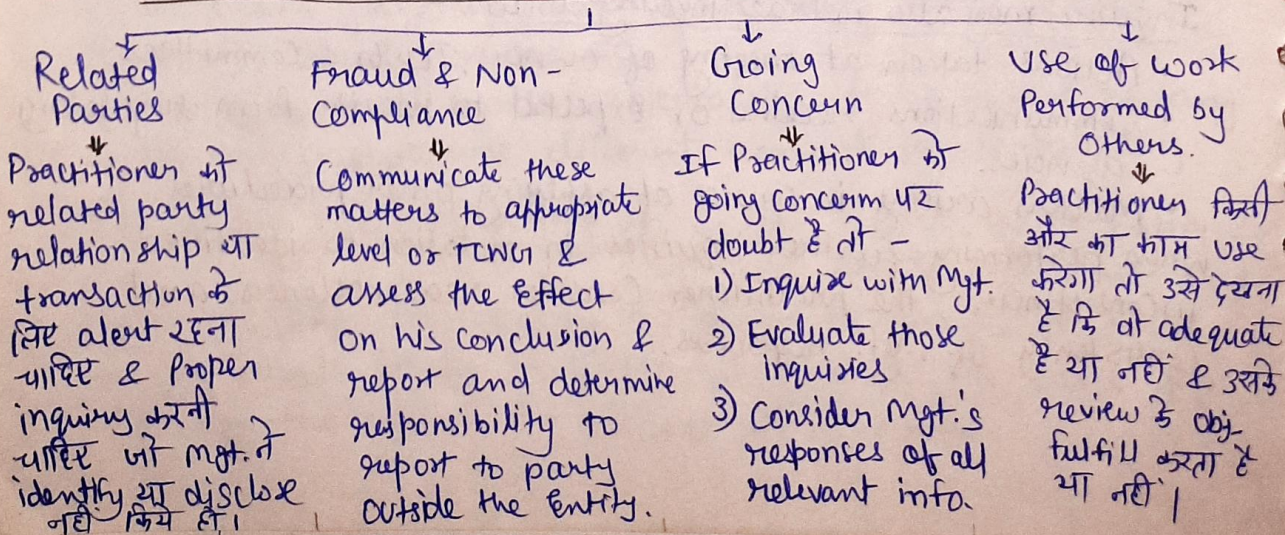 Related
Parties
Practitioner को
related party
relationship या
transaction के
लिए alert रहना
चाहिए & Proper
inquiry करनी
चाहिए जो mgt. ने
identify या disclose
नहीं किये हो।
Fraud & Non-
Compliance
Communicate these
matters to appropriate
level or TCWG &
assess the Effect
on his conclusion &
report and determine
responsibility to
report to party
outside the Entity.
Going
Concern
If Practitioner को
going concern पर
doubt है तो -
1) Inquire with Mgt.
2) Evaluate those
inquiries
3) Consider Mgt.'s
responses of all
relevant info.
Use of work
Performed by
Others.
Practitioner किसी
और का काम use
करेगा तो उसे देखना
है कि वो adequate
है या नहीं & उसके
review के obj.
fulfill करता है
या नहीं।